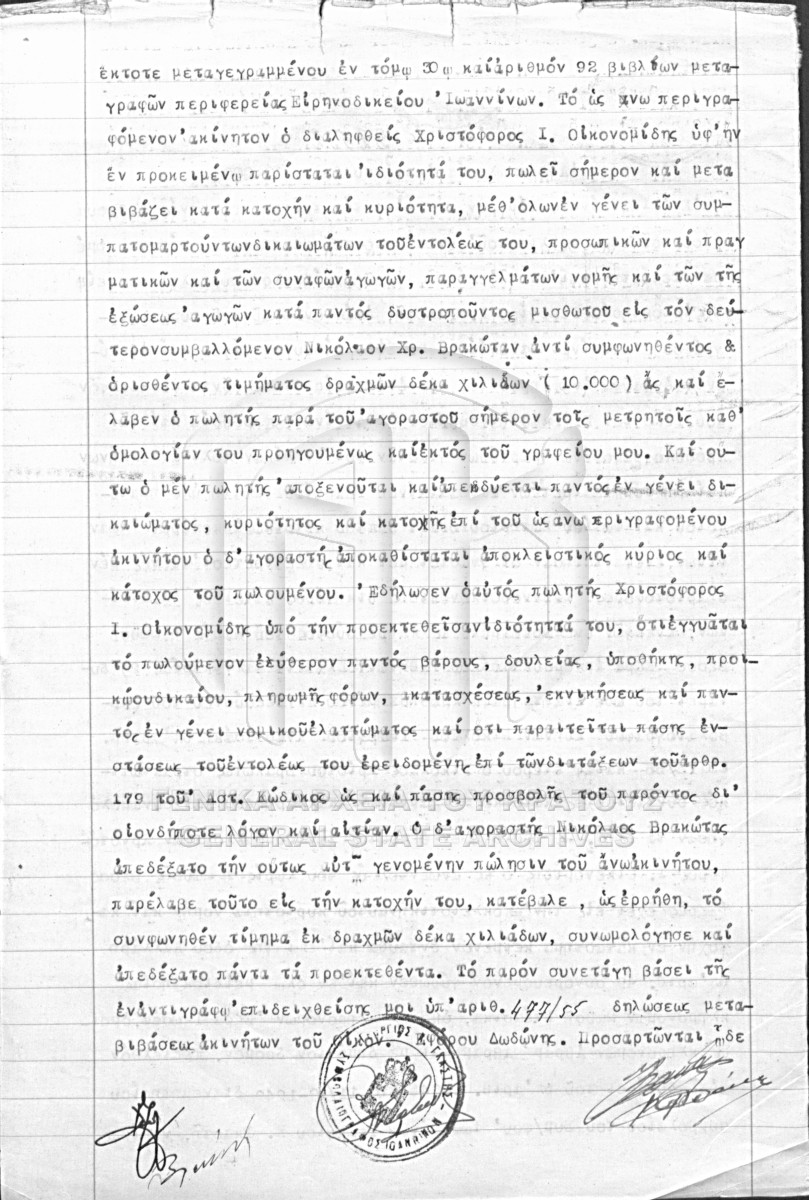 ἔκτοτε μεταγεγραμμένου ἐν τόμῳ 30ῳ καίἀριθμόν 92 βιβλίων μετα-
γραφῶν περιφερείαςΕἰρηνοδικείου Ἰωαννίνων. Τό ὡς ἄνω περιγρα-
φόμενον ἀκίνητον ὁ διαληφθείς Χριστόφορος Ι. Οἰκονομίδης ὑφ'ἥν
ἐν προκειμένῳ παρίσταται ἰδιότητά του, πωλεῖ σήμερον καί μετα
βιβάζει κατά κατοχήν καί κυριότητα, μέθ'ὁλωνἐν γένει τῶν συμ-
πατομαρτούντωνδικαιωμάτων τοῦἐντολέως του, προσωπικῶν καί πραγ
ματικῶν καί τῶν συναφῶνἀγωγῶν, παραγγελμάτων νομῆς καί τῶν τῆς
ἐξώσεως ἀγωγῶν κατά παντός δυστροποῦντος μισθωτοῦ εἰς τόν δεύ-
τερονσυμβαλλόμενον Νικόλαον Χρ. Βρακώταν ἀντί συμφωνηθέντος &
ὁρισθέντος τιμήματος δραχμῶν δέκα χιλιάδων ( 10.000 ) ἅς καί ἔ-
λαβεν ὁ πωλητής παρά τοῦ ἀγοραστοῦ σήμερον τοῖς μετρητοῖς καθ'
ὁμολογίαν του προηγουμένως καίἐκτός τοῦ γραφείου μου. Καί ου-
τω ὁ μέν πωλητής ἀποξενοῦται καί ἀπεκδύεται παντόςἐν γένει δι-
καιώματος, κυριότητος καί κατοχῆς ἐπί τοῦ ὡς ανω περιγραφομένου
ἀκινήτου ὁ δ'ἀγοραστής ἀποκαθίσταται ἀποκλειστικός κύριος καί
κάτοχος τοῦ πωλουμένου. Ἐδήλωσεν ὁαὐτός πωλητής Χριστόφορος
Ι. Οἰκονομίδης ὑπό τήν προεκτεθεῖσανἰδιότηττά του, ὀτιἐγγυᾶται
τό πωλούμενον ἐλύθερον παντός βάρους, δουλείας, ὑποθήκης, προι-
κώουδικαίου, πληρωμῆςφόρων, ἀκατασχέσεως, ἐκνικήσεως καί παν-
τόςἐν γένει νομικοῦἐλαττώματος καί οτι παραιτεῖται πάσης ἐν-
στάσεως τοῦἐντολέως του ἐρειδομένης ἐπί τῶνδιατάξεων τοῦἀρθρ.
179 τοῦ Ἀστ. Κώδικος ὡς καί πάσης προσβολῆς τοῦ παρόντος δι'
οἱονδήποτε λόγον καί αἰτίαν. Ὁ δ'ἀγοραστής Νικόλαος Βρακώτας
ἀπεδέξατο τήν οὑτως γενομένην πώλησιν τοῦ ἄνωἀκινήτου,
παρέλαβε τοῦτο εἰς τήν κατοχήν του, κατέβαλε , ὡςἐρρήθη, τό
συνφωνηθέν τίμημα ἐκ δραχμῶν δέκα χιλιάδων, συνωμολόγησε καί
ἀπεδέξατο πάντα τά προεκτεθέντα. Τό παρόν συνετάγη βάσει τῆς
ἐνἀντιγράφῳ ἐπιδειχθείσης μοι ὑπ'ἀριθ. 477/55 δηλώσεως μετα-
βιβάσεως ἀκινήτων τοῦ Οἰκον. Ἐφόρου Δωδώνης. Προσαρτῶνται δε
ΓΕΝΙΚΑ ΑΡΧΕΙΑ ΤΟΥ ΚΡΑΤΟΥΣ
GENERAL STATE ARCHIVES